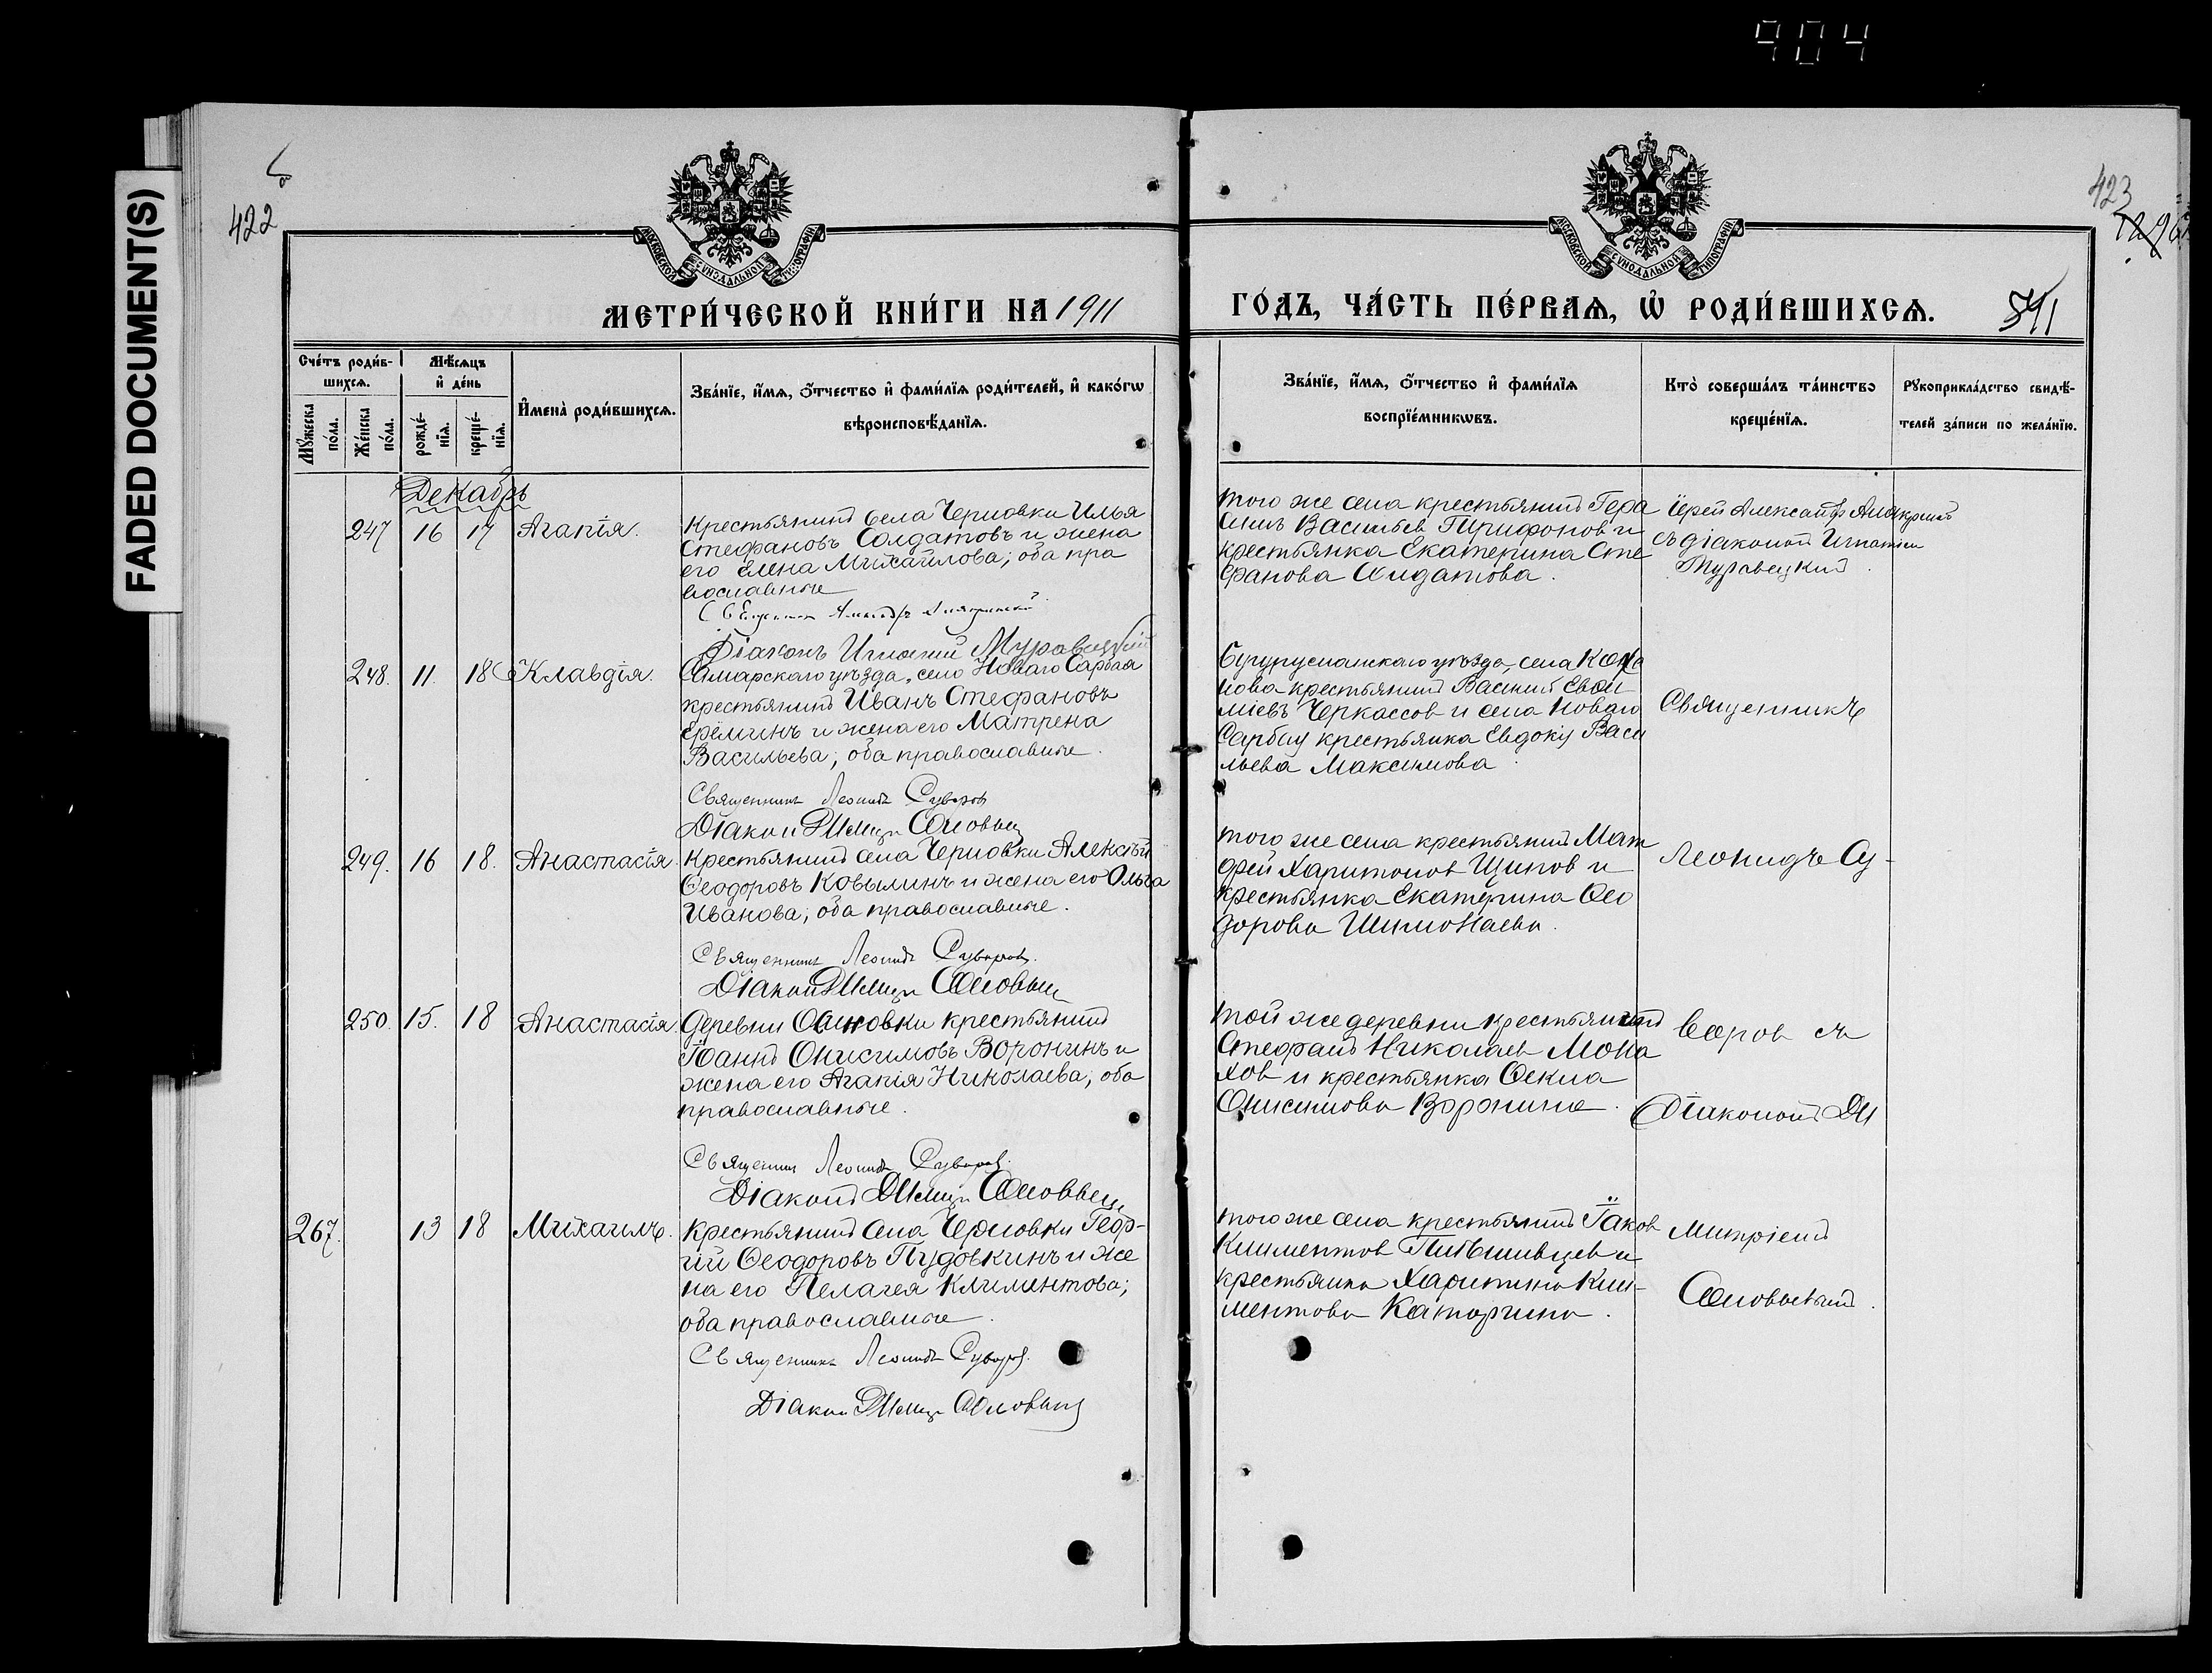 904
FADED DOCUMENT(S)
422
423
МОСКОВСКОЙ СѴНОДАЛЬНОЙ ТИПОГРАФІИ
МОСКОВСКОЙ СѴНОДАЛЬНОЙ ТИПОГРАФІИ
МЕТРИ́ЧЕСКОЙ КНИ́ГИ НА 1911
ГО́ДЪ, ЧА́СТЬ ПЕ́РВАѦ, Ѽ РОДИ́ВШИХСѦ.
Сче́тъ роди́в-
шихсѧ.
Мꙋ́жеска
по́ла.
Же́нска
по́ла.
Мѣ́сѧцъ
и҆ де́нь
рожде́-
нїѧ.
креще́-
нїѧ.
И҆мена̀ роди́вшихсѧ.
Зва́нїе, и҆́мѧ, ѻ҆́тчество и҆ фами́лїѧ роди́телей, и҆ како́гѡ
вѣроисповѣ́данїѧ.
Зва́нїе, и҆́мѧ, ѻ҆́тчество и҆ фами́лїѧ
воспрїе́мникѡвъ.
Кто̀ соверша́лъ та́инство
креще́нїѧ.
Рꙋкоприкла́дство свидѣ́-
телей за́писи по жела́нїю.
Декабрь
247 16 17 Агапія.
Крестьянинъ села Черновки Илья
Стефановъ Солдатовъ и жена
его Елена Михаилова; оба пра
вославные
Діаконъ Игнатий Муравецкій
того же села крестьянинъ Гера
симъ Васильев Трифонов и
крестьянка Екатерина Сте
фанова Солдатова.
іерей Александръ
съ діаконом Игнатіем
Муравецкий
248. 11. 18 Клавдія.
Самарскаго уѣзда, село Новаго Сарбая
крестьянинъ Иванъ Стефановъ
Еремин и жена его Матрена
Васильева; оба православные.
Священникъ Леонидъ Суворов
Діакон Димитрій Соловьев
Бугурусланскаго уѣзда, села
нова крестьянинъ Василий
міевъ Черкассов и села Новаго
Сарбая крестьянка Евдокія Васи
льева Максимова.
Священникъ
249. 16 18. Анастасія.
Крестьянинъ села Черновки Алексѣй
Ѳеодоровъ Ковылинъ и жена его Ольга
Иванова; оба православные.
Священникъ Леонидъ Суворов.
Діакон Димитрій Соловьев
того же села крестьянинъ Мат
фей Харитонов Щипов и
крестьянка Екатерина Ѳео
дорова
Леонидъ Су-
250. 15. 18 Анастасія.
Деревни Осиновки крестьянинъ
Іоаннъ Онисимовъ Воронинъ и
жена его Агапія Николаева; оба
православные.
Священникъ Леонидъ Суворов.
Діаконъ Димитрій Соловьев
той же деревни крестьянинъ
Стефанъ Николаев Мона
хов и крестьянка Ѳекла
Онисимова Воронина.
воров съ
Діакономъ Ди
267. 13 18 Михаилъ.
Крестьянинъ села Черновки Геор-
гій Ѳеодоровъ Пудовкинъ и же
на его Пелагея Климентова;
оба православные.
Священникъ Леонидъ Суворов.
Діакон Димитрій Соловьев
того же села крестьянинъ Іаков
Климентов
крестьянка Харитина Кли-
ментова Каторгина.
митріемъ
Соловьевым.